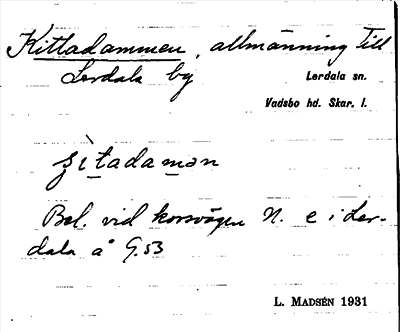 Kittadammen, allmänning till
Lerdala by
Lerdala sn.
Vadsbo hd. Skar. l.
ʒìtadamən
Bel. vid korsvägen N. e i Ler-
dala å G.53
L. MADSÉN 1931